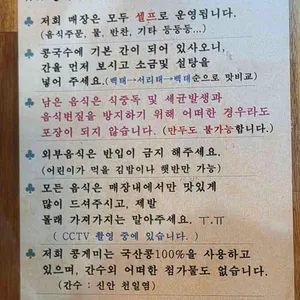 ♣ 저희 매장은 모두 셀프로 운영됩니다.
(음식주문, 물, 반찬, 기타 등등등...)
♣ 콩국수에 기본 간이 되어 있사오니,
간을 먼저 보시고 소금및 설탕을
넣어 주세요.(백태→서리태→백태순으로 맛비교)
♣ 남은 음식은 식중독 및 세균발생과
음식변질을 방지하기 위해 어떠한 경우라도
포장이 되지 않습니다. (만두도 불가능합니다.)
♣ 외부음식은 반입이 금지 해주세요.
(어린이가 먹을 김밥이나 햇반만 가능)
♣ 모든 음식은 매장내에서만 맛있게
많이 드셔주시고, 제발
몰래 가져가지는 말아주세요. ㅜ.ㅠ
( CCTV 촬영 중에 있습니다. )
♣ 저희 콩게미는 국산콩100%을 사용하고
있으며, 간수외 어떠한 첨가물도 없습니다.
(간수 : 신안 천일염)